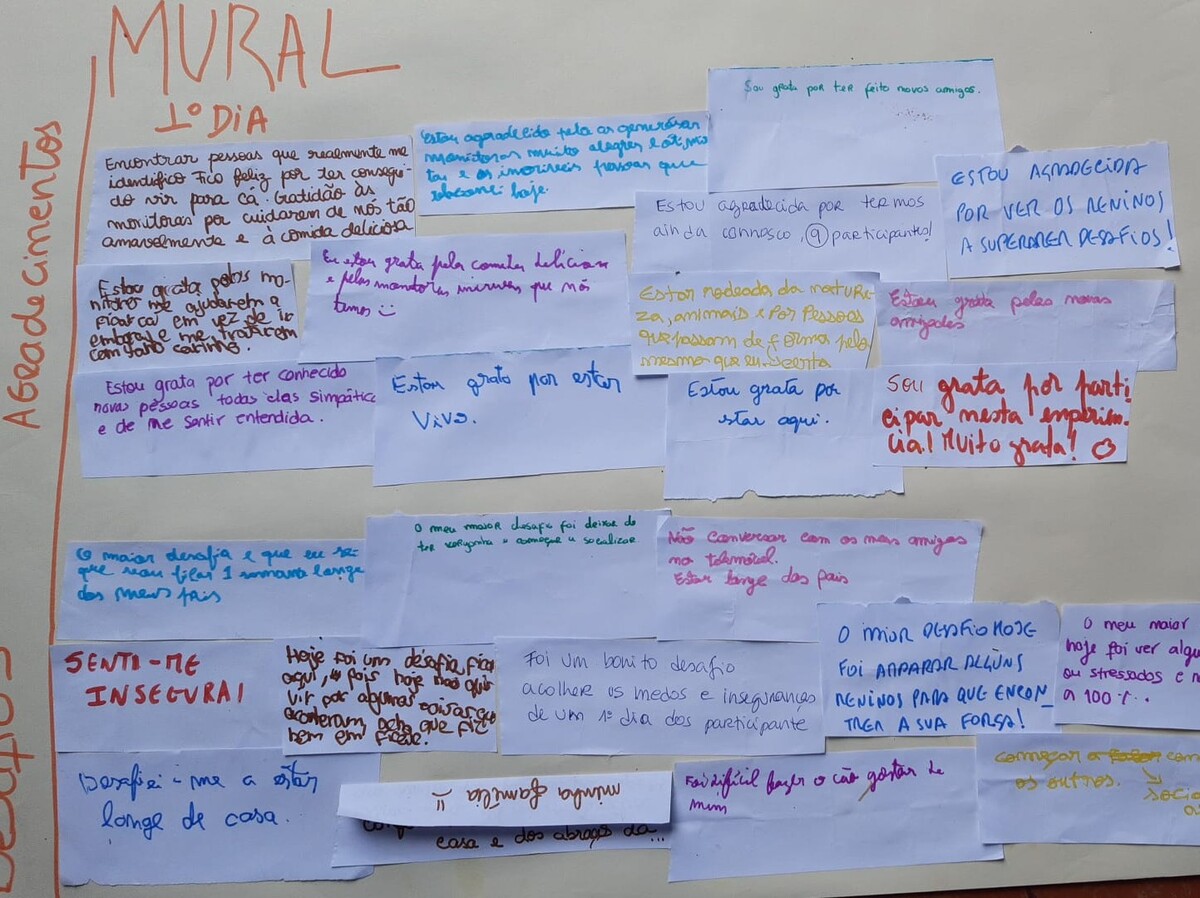 MURAL
1º DIA
Agradecimentos
Encontrar pessoas que realmente me
identifico Fico feliz por ter consegui-
do vir para cá. Gratidão às
monitoras por cuidarem de nós tão
amavelmente e à comida deliciosa
Estou agradecido pela as
monitoras muito alegres e
e as incríveis pessoas que
hoje.
Sou grata por ter feito novos amigos.
Estou agradecida por termos
ainda connosco, 9 participantes!
ESTOU AGRADECIDA
POR VER OS MENINOS
A SUPERAREM DESAFIOS!
Estou grata pelas mo-
nitoras me ajudarem a
ficar cá em vez de ir
embora e me tratarem
com tanto carinho.
Eu estou grata pela comida deliciosa
e pelas monitoras incríveis que nós
temos
Estar rodeada da nature-
za, animais e por pessoas
que passam de forma pelo
mesmo que eu.
Estou grata pelas novas
amizades
Estou grata por ter conhecido
novas pessoas todas elas simpática
e de me sentir entendida.
Estou grato por estar
vivo.
Estou grata por
star aqui.
Sou grata por parti
cipar nesta experien-
cia! Muito grata!
Desafios
O maior desafia e que eu sei
que vou ficar 1 semana longe
dos meus pais
O meu maior desafio foi deixar de
ter vergonha e começar a socializar
Não conversar com os meus amigos
no telemóvel.
Estar longe dos pais
SENTI-ME
INSEGURA!
Hoje foi um desafia ficar
aqui, pois hoje não quis
vir por algumas coisas que
aconteram, acho que fiz
bem em ficar.
Foi um bonito desafio
acolher os medos e inseguranças
de um 1º dia dos participante
O MIOR DESAFIO HOJE
FOI AMPARAR ALGUNS
MENINOS PARA QUE ENCON_
TREM A SUA FORÇA!
O meu maior
hoje foi ver algu
ou stressados e n
a 100%.
Desafiei-me a estar
longe de casa.
minha família
casa e dos abraços da...
Foi difícil fazer o cão gostar de
mim
começar a com
os outros.